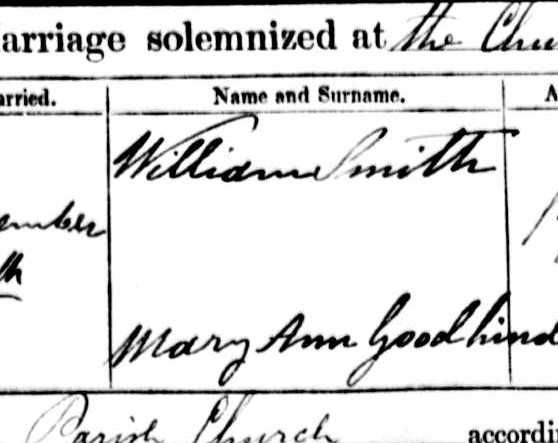 arriage solemnized at the Chu
arried. Name and Surname. A
William Smith
ember
th
Mary Ann Goodhind
Parish Church accordi